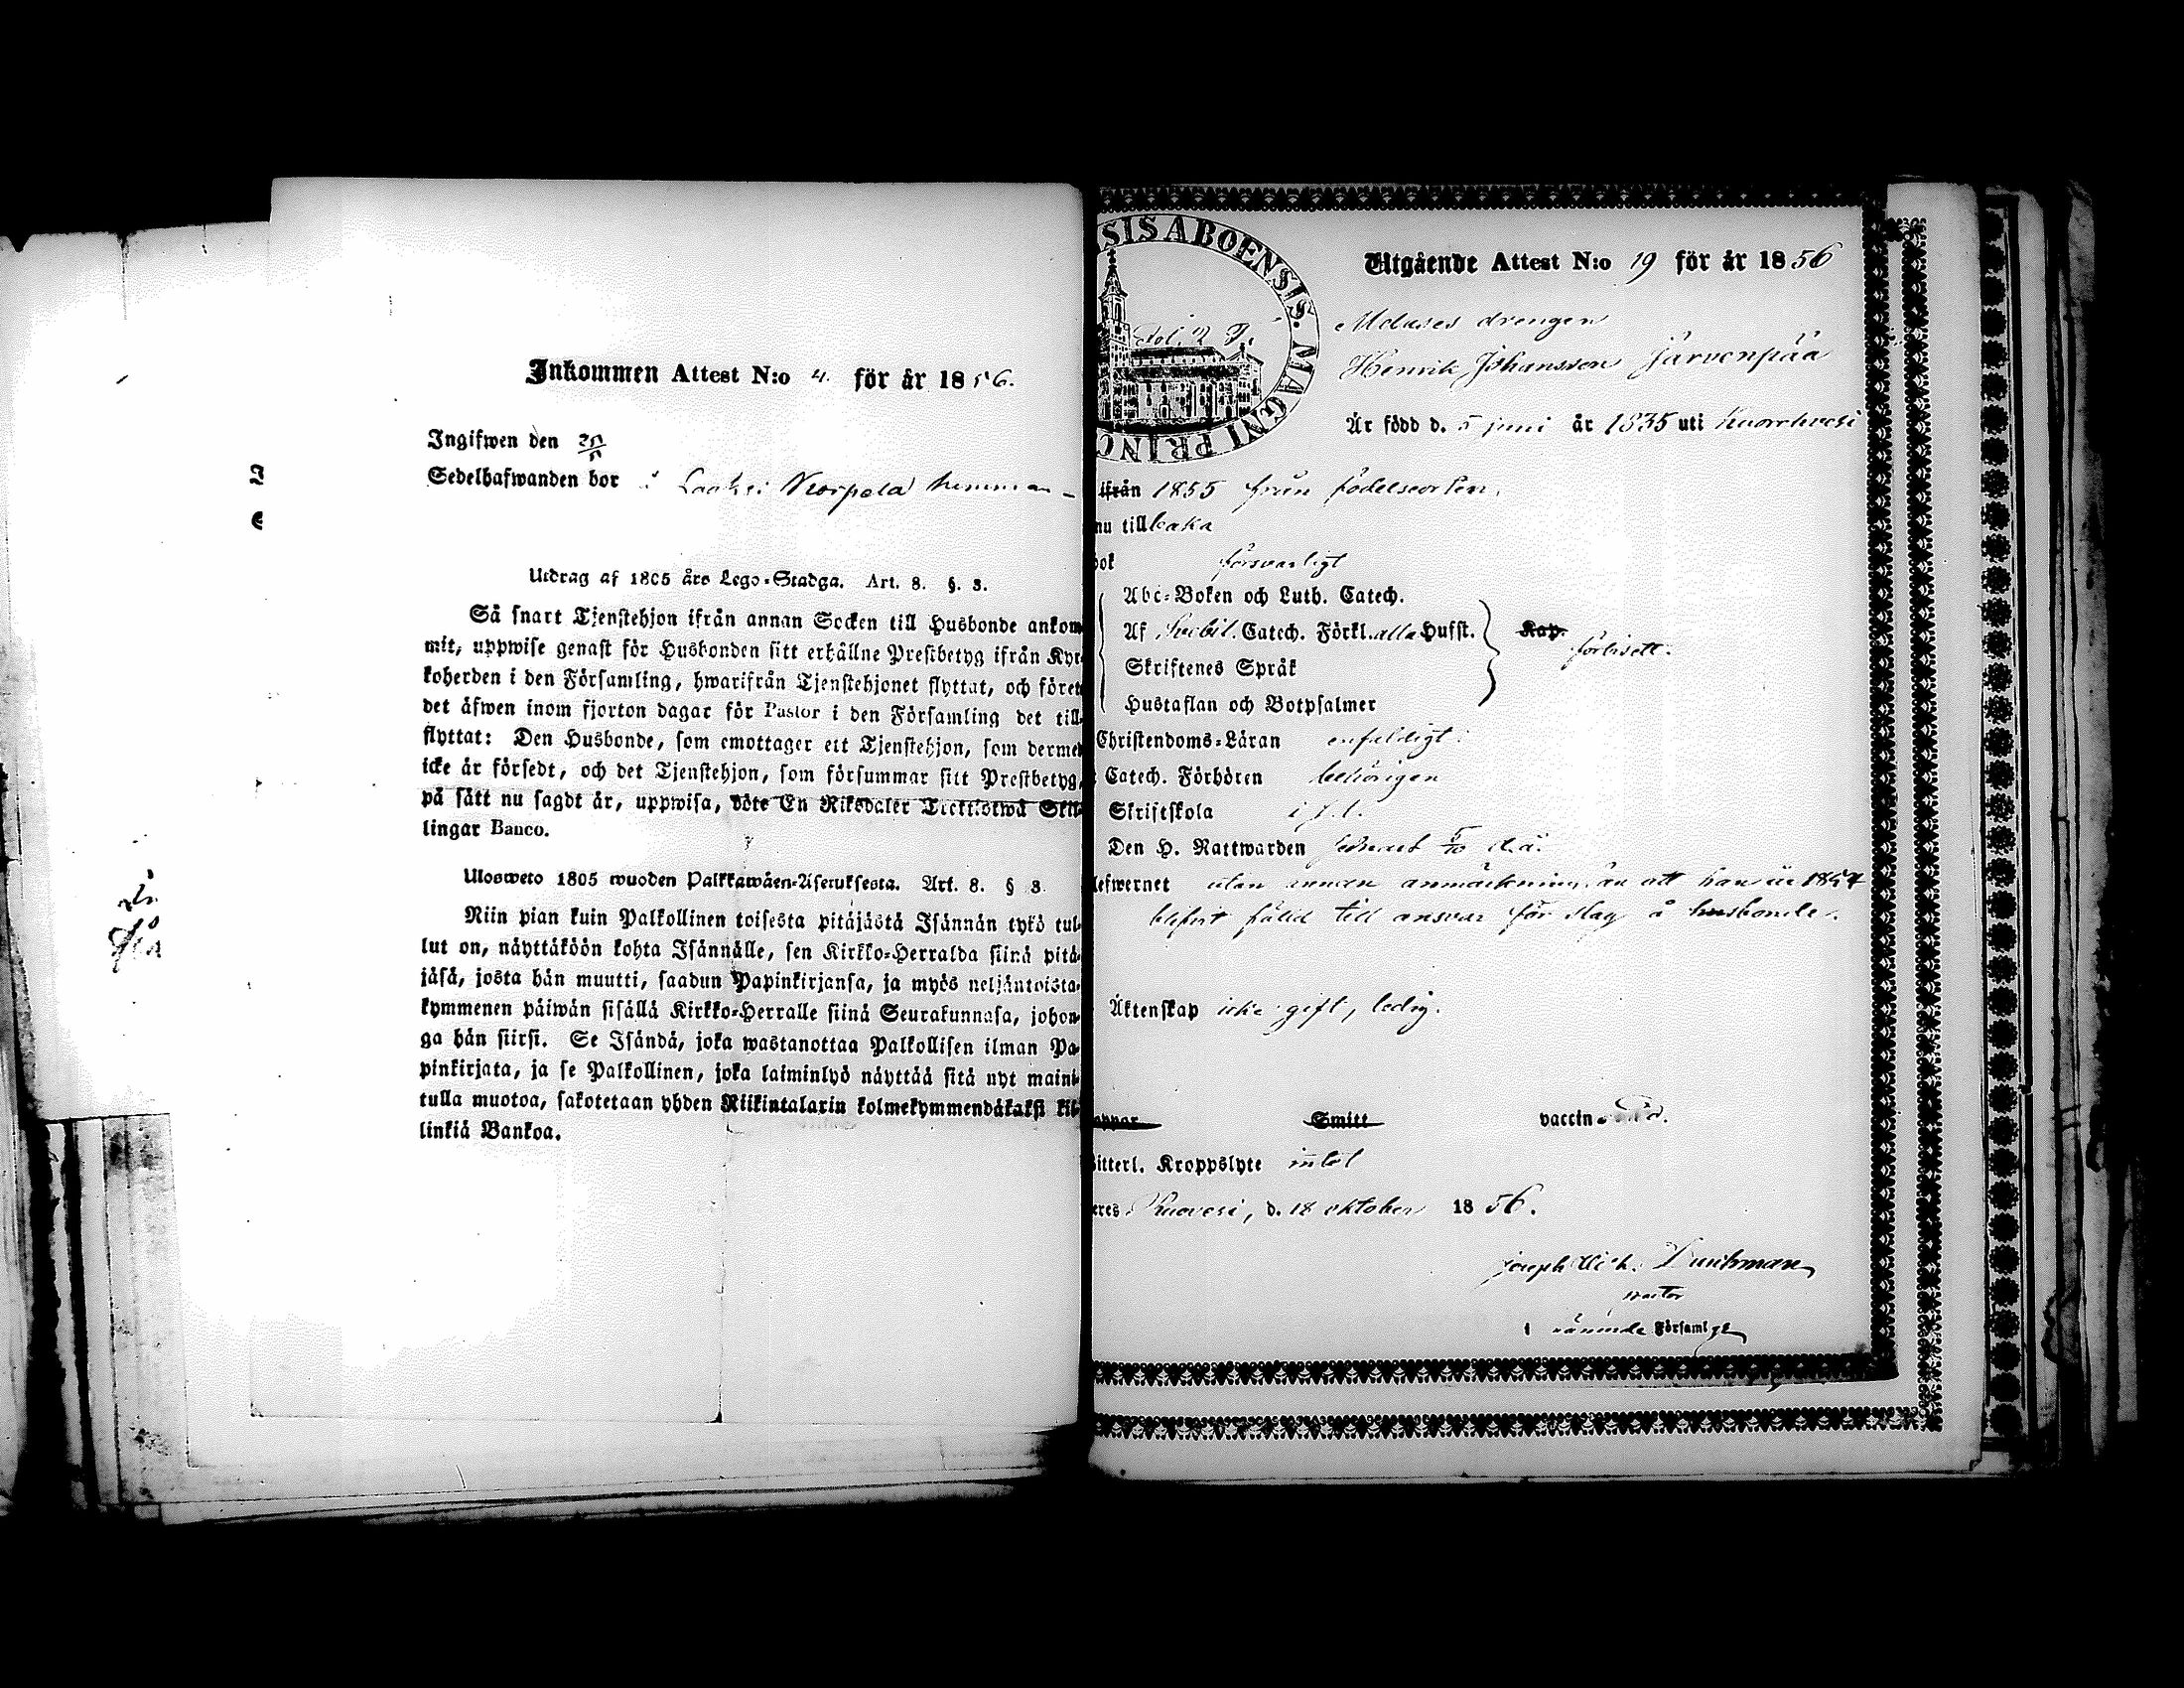 Inkommen Attest N:o 4. för år 1856.
Ingifwen den 20/5
Sedelhafwanden bor i Laaksi Korpela hemman
Utdrag af 1805 års Lego-Stadga. Art. 8. §. 3.
Så snart Tjenstehjon ifrån annan Socken till Husbonde ankom-
mit, uppwise genast för Husbonden sitt erhållne Prestbetyg ifrån Kyr-
koherden i den Församling, hwarifrån Tjenstehjonet flyttat, och föret
det äfwen inom fjorton dagar för Pastor i den Församling det till-
flyttat: Den Husbonde, som emottager ett Tjenstehjon, som dermed
icke är försedt, och det Tjenstehjon, som försummar sitt Prestbetyg,
på sätt nu sagdt är, uppwisa, böte En Riksdaler Trettiotwå Skil-
lingar Banco.
Ulosweto 1805 wuoden Palkkawäen-Asetuksesta. Art. 8. § 3.
Niin pian kuin Palkollinen toisesta pitäjästä Isännän tykö tul-
lut on, näyttäköön kohta Isännälle, sen Kirkko-Herralda siinä pitä-
jäsä, josta hän muutti, saadun Papinkirjansa, ja myös neljäntoista-
kymmenen päiwän sisällä Kirkko-Herralle siinä Seurakunnasa, johon-
ga hän siirsi. Se Isändä, joka wastanottaa Palkollisen ilman Pa-
pinkirjata, ja se Palkollinen, joka laiminlyö näyttää sitä nyt maini-
tulla muotoa, sakotetaan yhden Riikintalarin kolmekymmendäkaksi kil-
linkiä Bankoa.
SIS ABOENSIS. MAGNI PRINC
Utgående Attest N:o 19 för år 1856
drengen
Henrik Johansson Järvenpää
Är född d. 5 juni år 1835 uti Kuorehvesi
ifrån 1855 från födelseorten.
nu tillbaka
bok försvarligt
Abc-Boken och Luth. Catech.
Af Svebil. Catech. Förkl. alla Hufst. Kap.
Skriftenes Språk
Hustaflan och Botpsalmer
Christendoms-Läran enfaldigt.
Catech. Förhören behörigen
Skriftskola
Den H. Nattwarden senast 5/10 d.å.
lefwernet utan annan anmärkning än att han år 1854
blifvit fälld till ansvar för slag å husbonde.
Äktenskap icke gift, ledig.
oppor Smitt vaccinerad.
itterl. Kroppslyte intet
eres Ruovesi, d. 18 oktober 1856.
Joseph Wilh. Durchman
Pastor
i nämnde Församlg